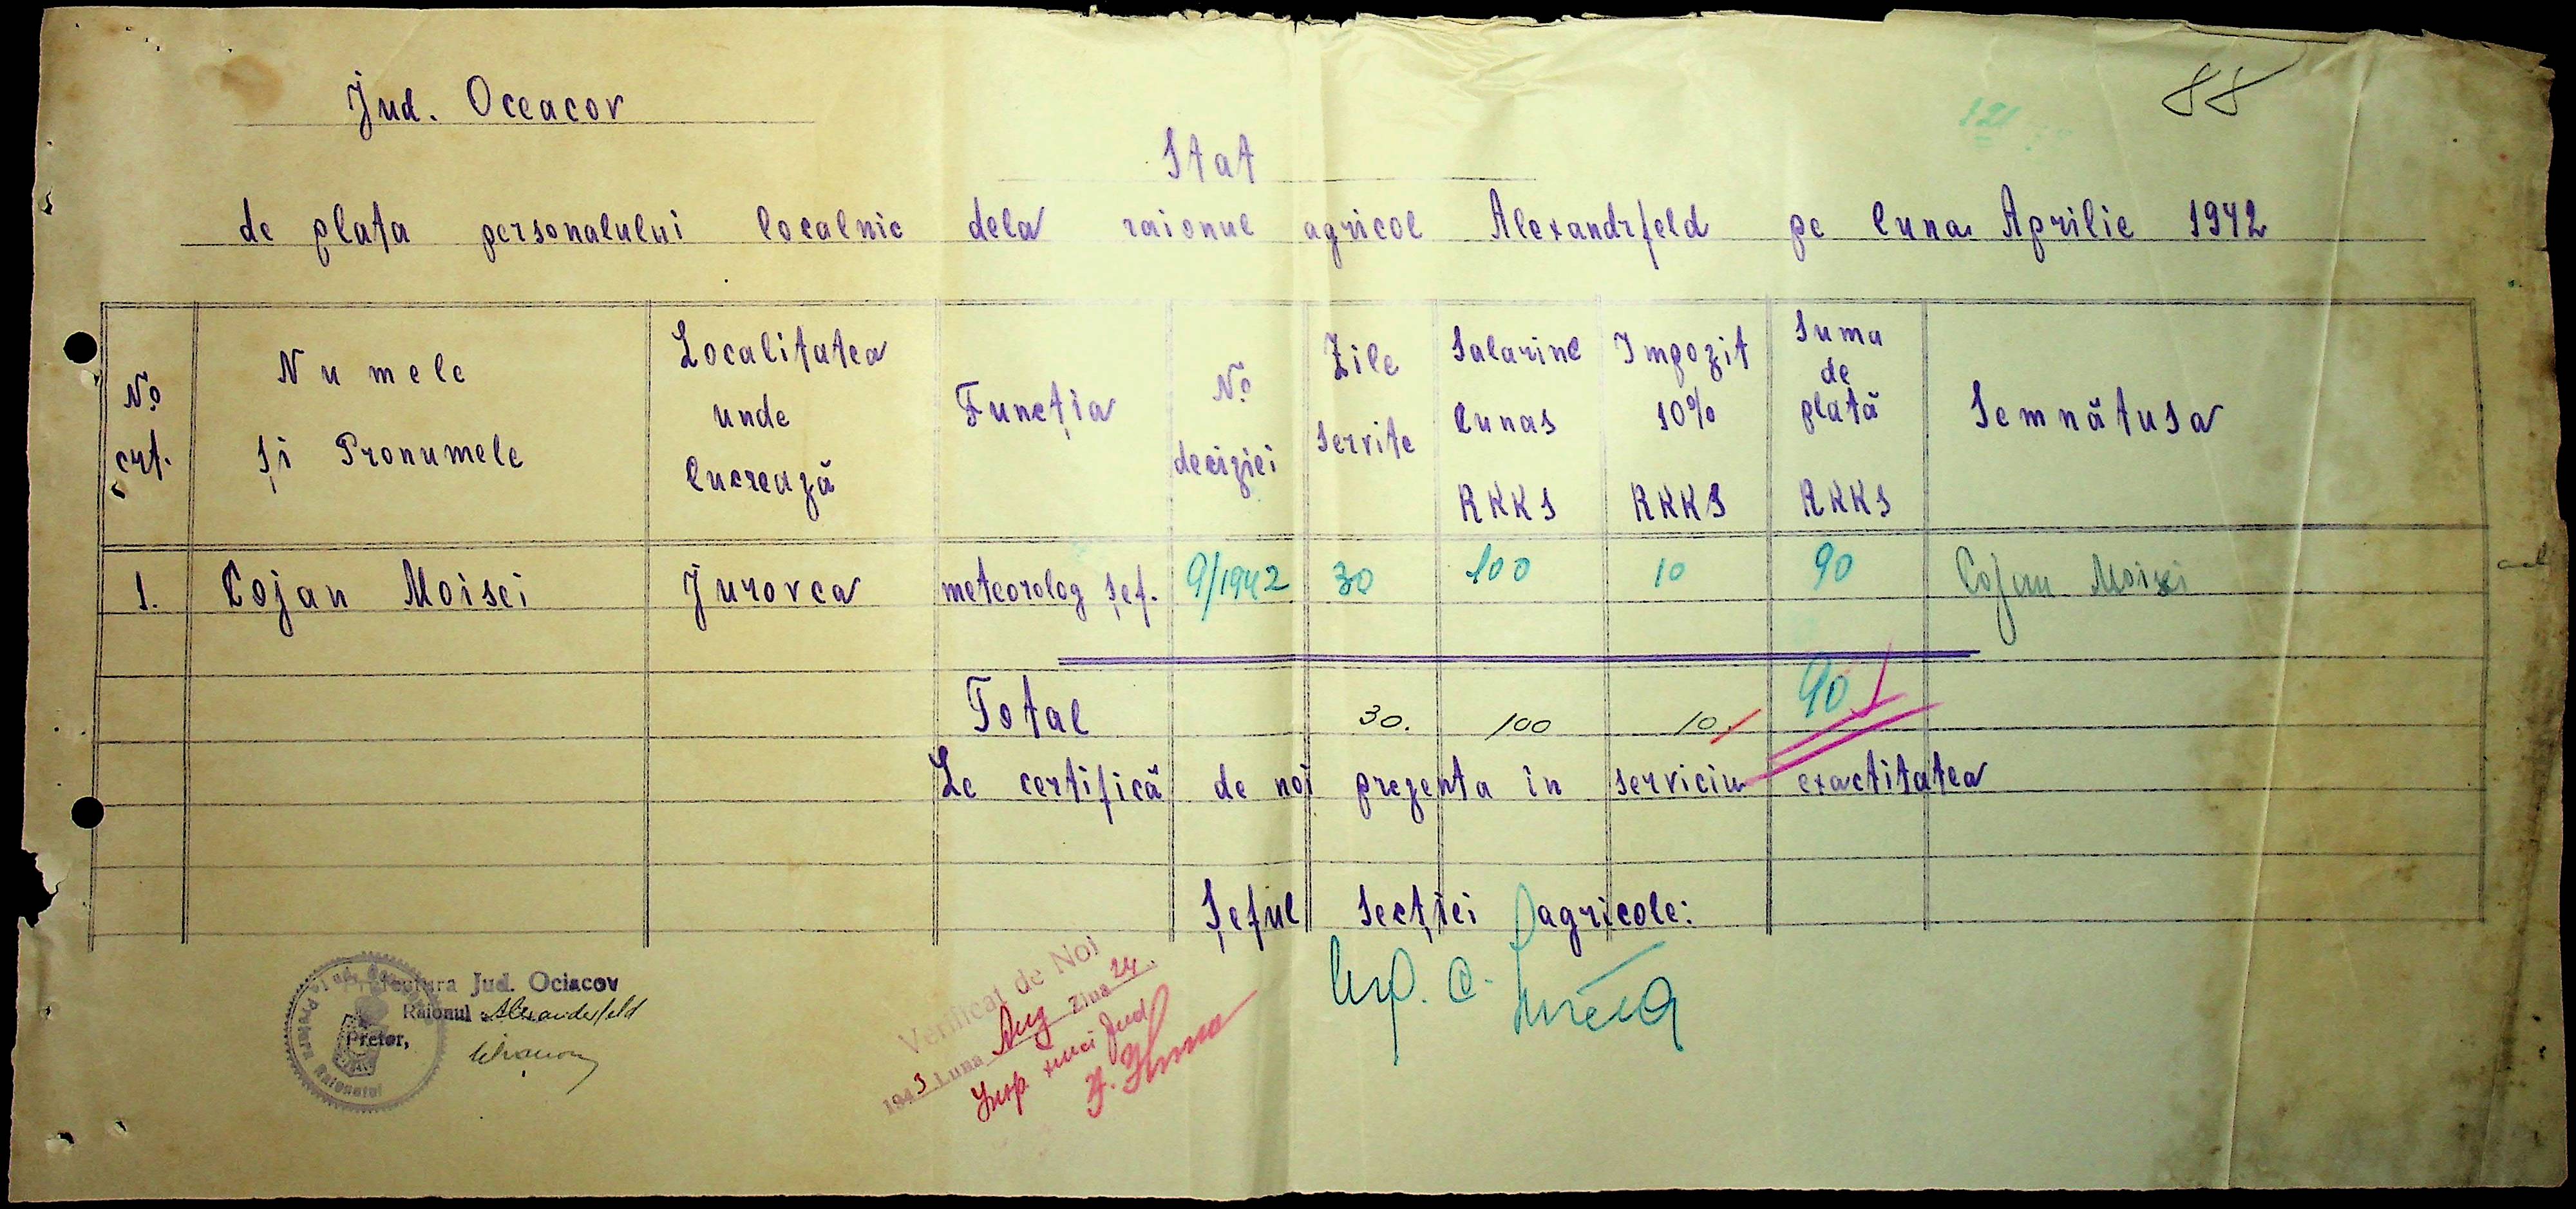 88
121
Jud. Oceacov
Stat
de plata personalului localnic dela raionul agricol Alexandrfeld pe luna Aprilie 1942
No. crt.
Numele și Pronumele
Localitatea unde lucrează
Funcția
No. deciziei
Zile servite
Salariul lunas RKKS
Impozit 10% RKKS
Suma de plată RKKS
Semnătusa
1. Cojan Moisei Jurovca meteorolog șef. 9/1942 30 100 10 90 Cojan Moisei
Total 30. 100 10 90
Se certifică de noi prezenta în serviciu exactitatea
Șeful Secției agricole:
Prefectura Jud. Ociacov
Raionul Alexanderfeld
Pretor,
Verificat de Noi
1943 Luna Aug Ziua 24.
Insp. Jud